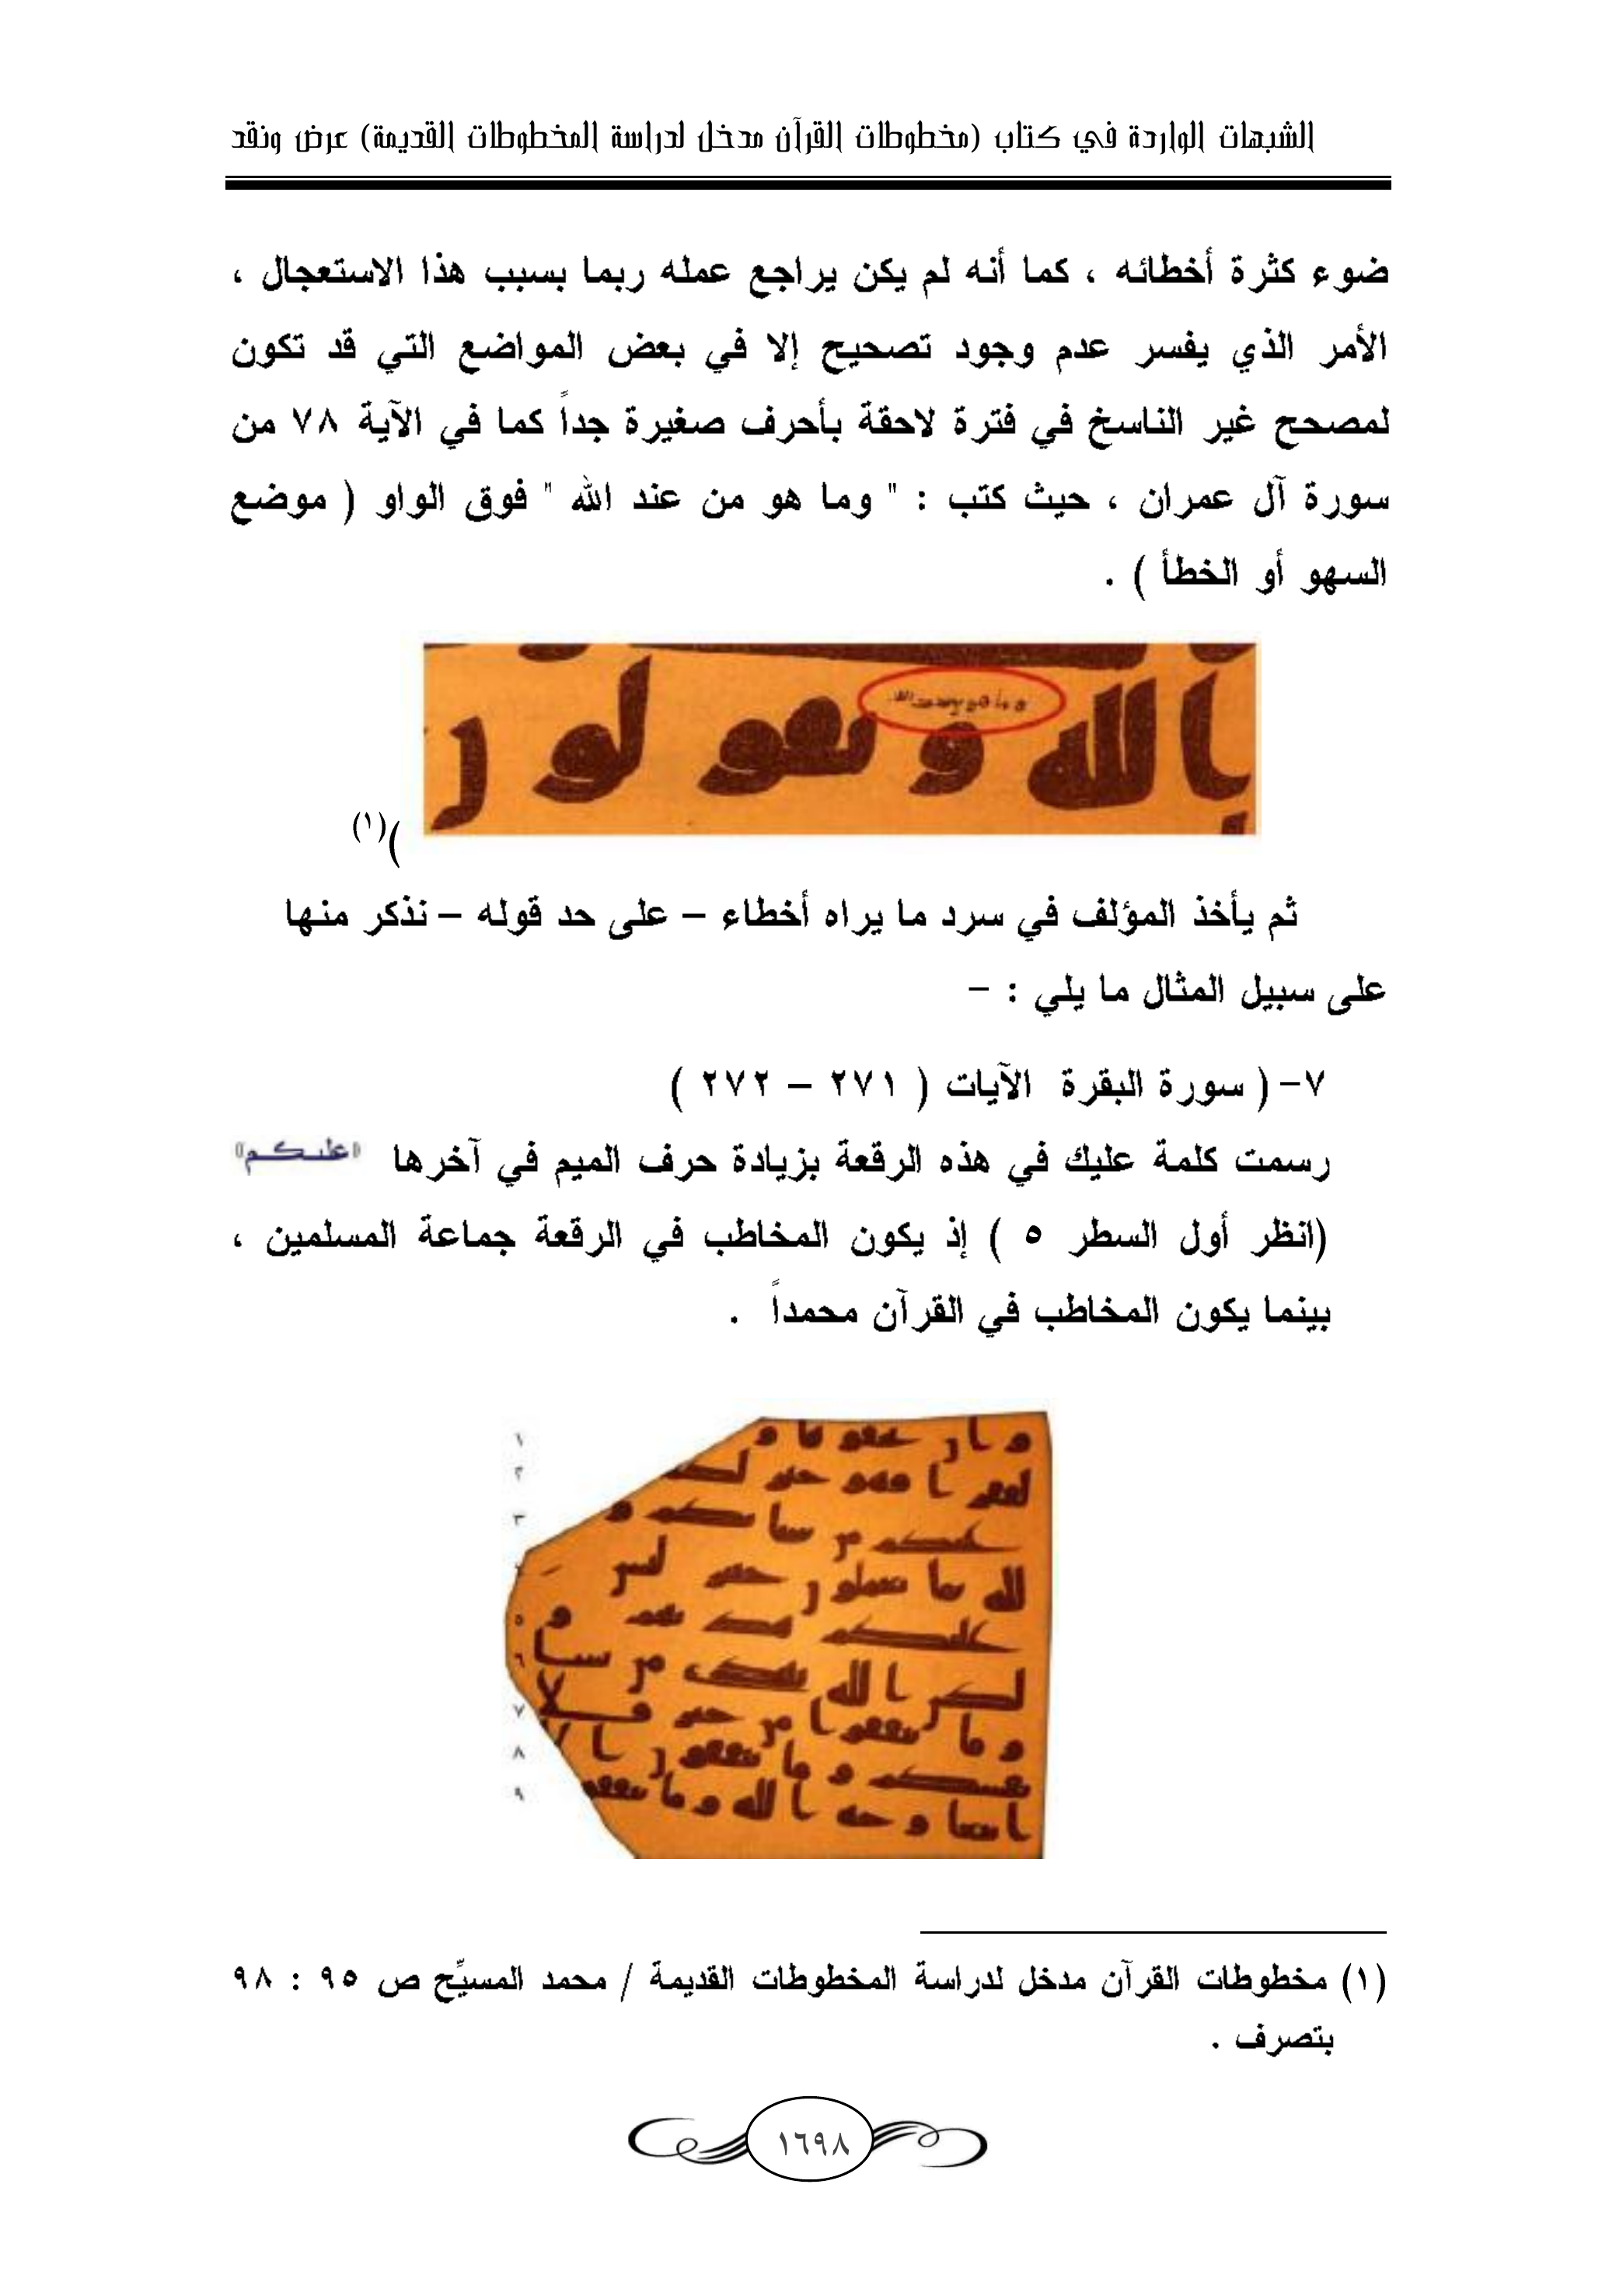 الشبهات الواردة في كتاب (مخطوطات القرآن مدخل لدراسة المخطوطات القديمة) عرض ونقد
ضوء كثرة أخطائه ، كما أنه لم يكن يراجع عمله ربما بسبب هذا الاستعجال ،
الأمر الذي يفسر عدم وجود تصحيح إلا في بعض المواضع التي قد تكون
لمصحح غير الناسخ في فترة لاحقة بأحرف صغيرة جداً كما في الآية ٧٨ من
سورة آل عمران ، حيث كتب : " وما هو من عند الله " فوق الواو ( موضع
السهو أو الخطأ ) .
)(١)
ثم يأخذ المؤلف في سرد ما يراه أخطاء – على حد قوله – نذكر منها
على سبيل المثال ما يلي : -
٧- ( سورة البقرة الآيات ( ٢٧١ – ٢٧٢ )
رسمت كلمة عليك في هذه الرقعة بزيادة حرف الميم في آخرها «عليكم»
(انظر أول السطر ٥ ) إذ يكون المخاطب في الرقعة جماعة المسلمين ،
بينما يكون المخاطب في القرآن محمداً .
١
٢
٣
٥
٦
٧
٨
٩
(١) مخطوطات القرآن مدخل لدراسة المخطوطات القديمة / محمد المسيِّح ص ٩٥ : ٩٨
بتصرف .
١٦٩٨